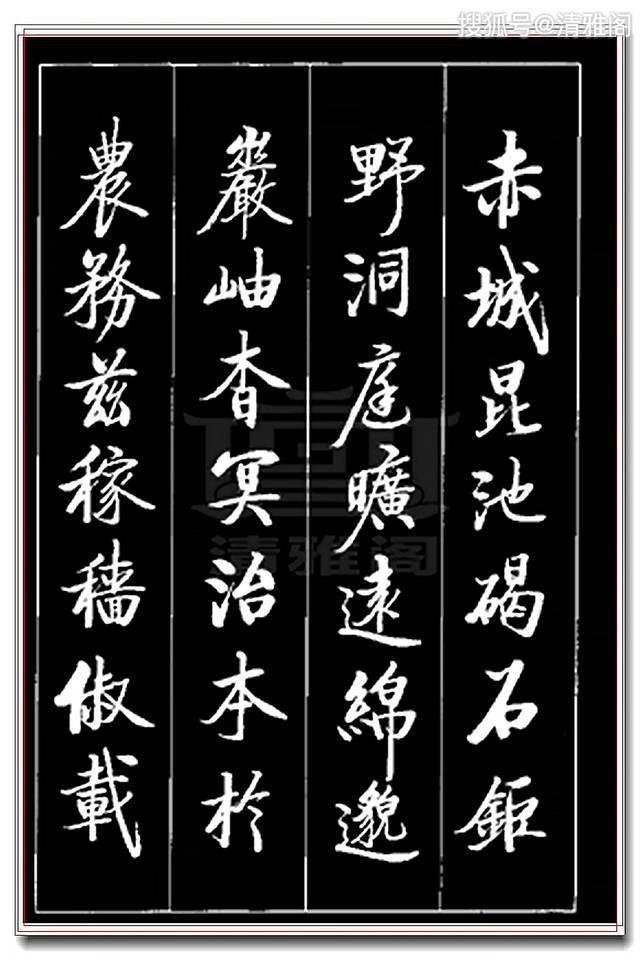 搜狐号@清雅阁
赤城昆池碣石鉅
野洞庭曠遠綿邈
巖岫杳冥治本於
農務兹稼穡俶載
清雅阁